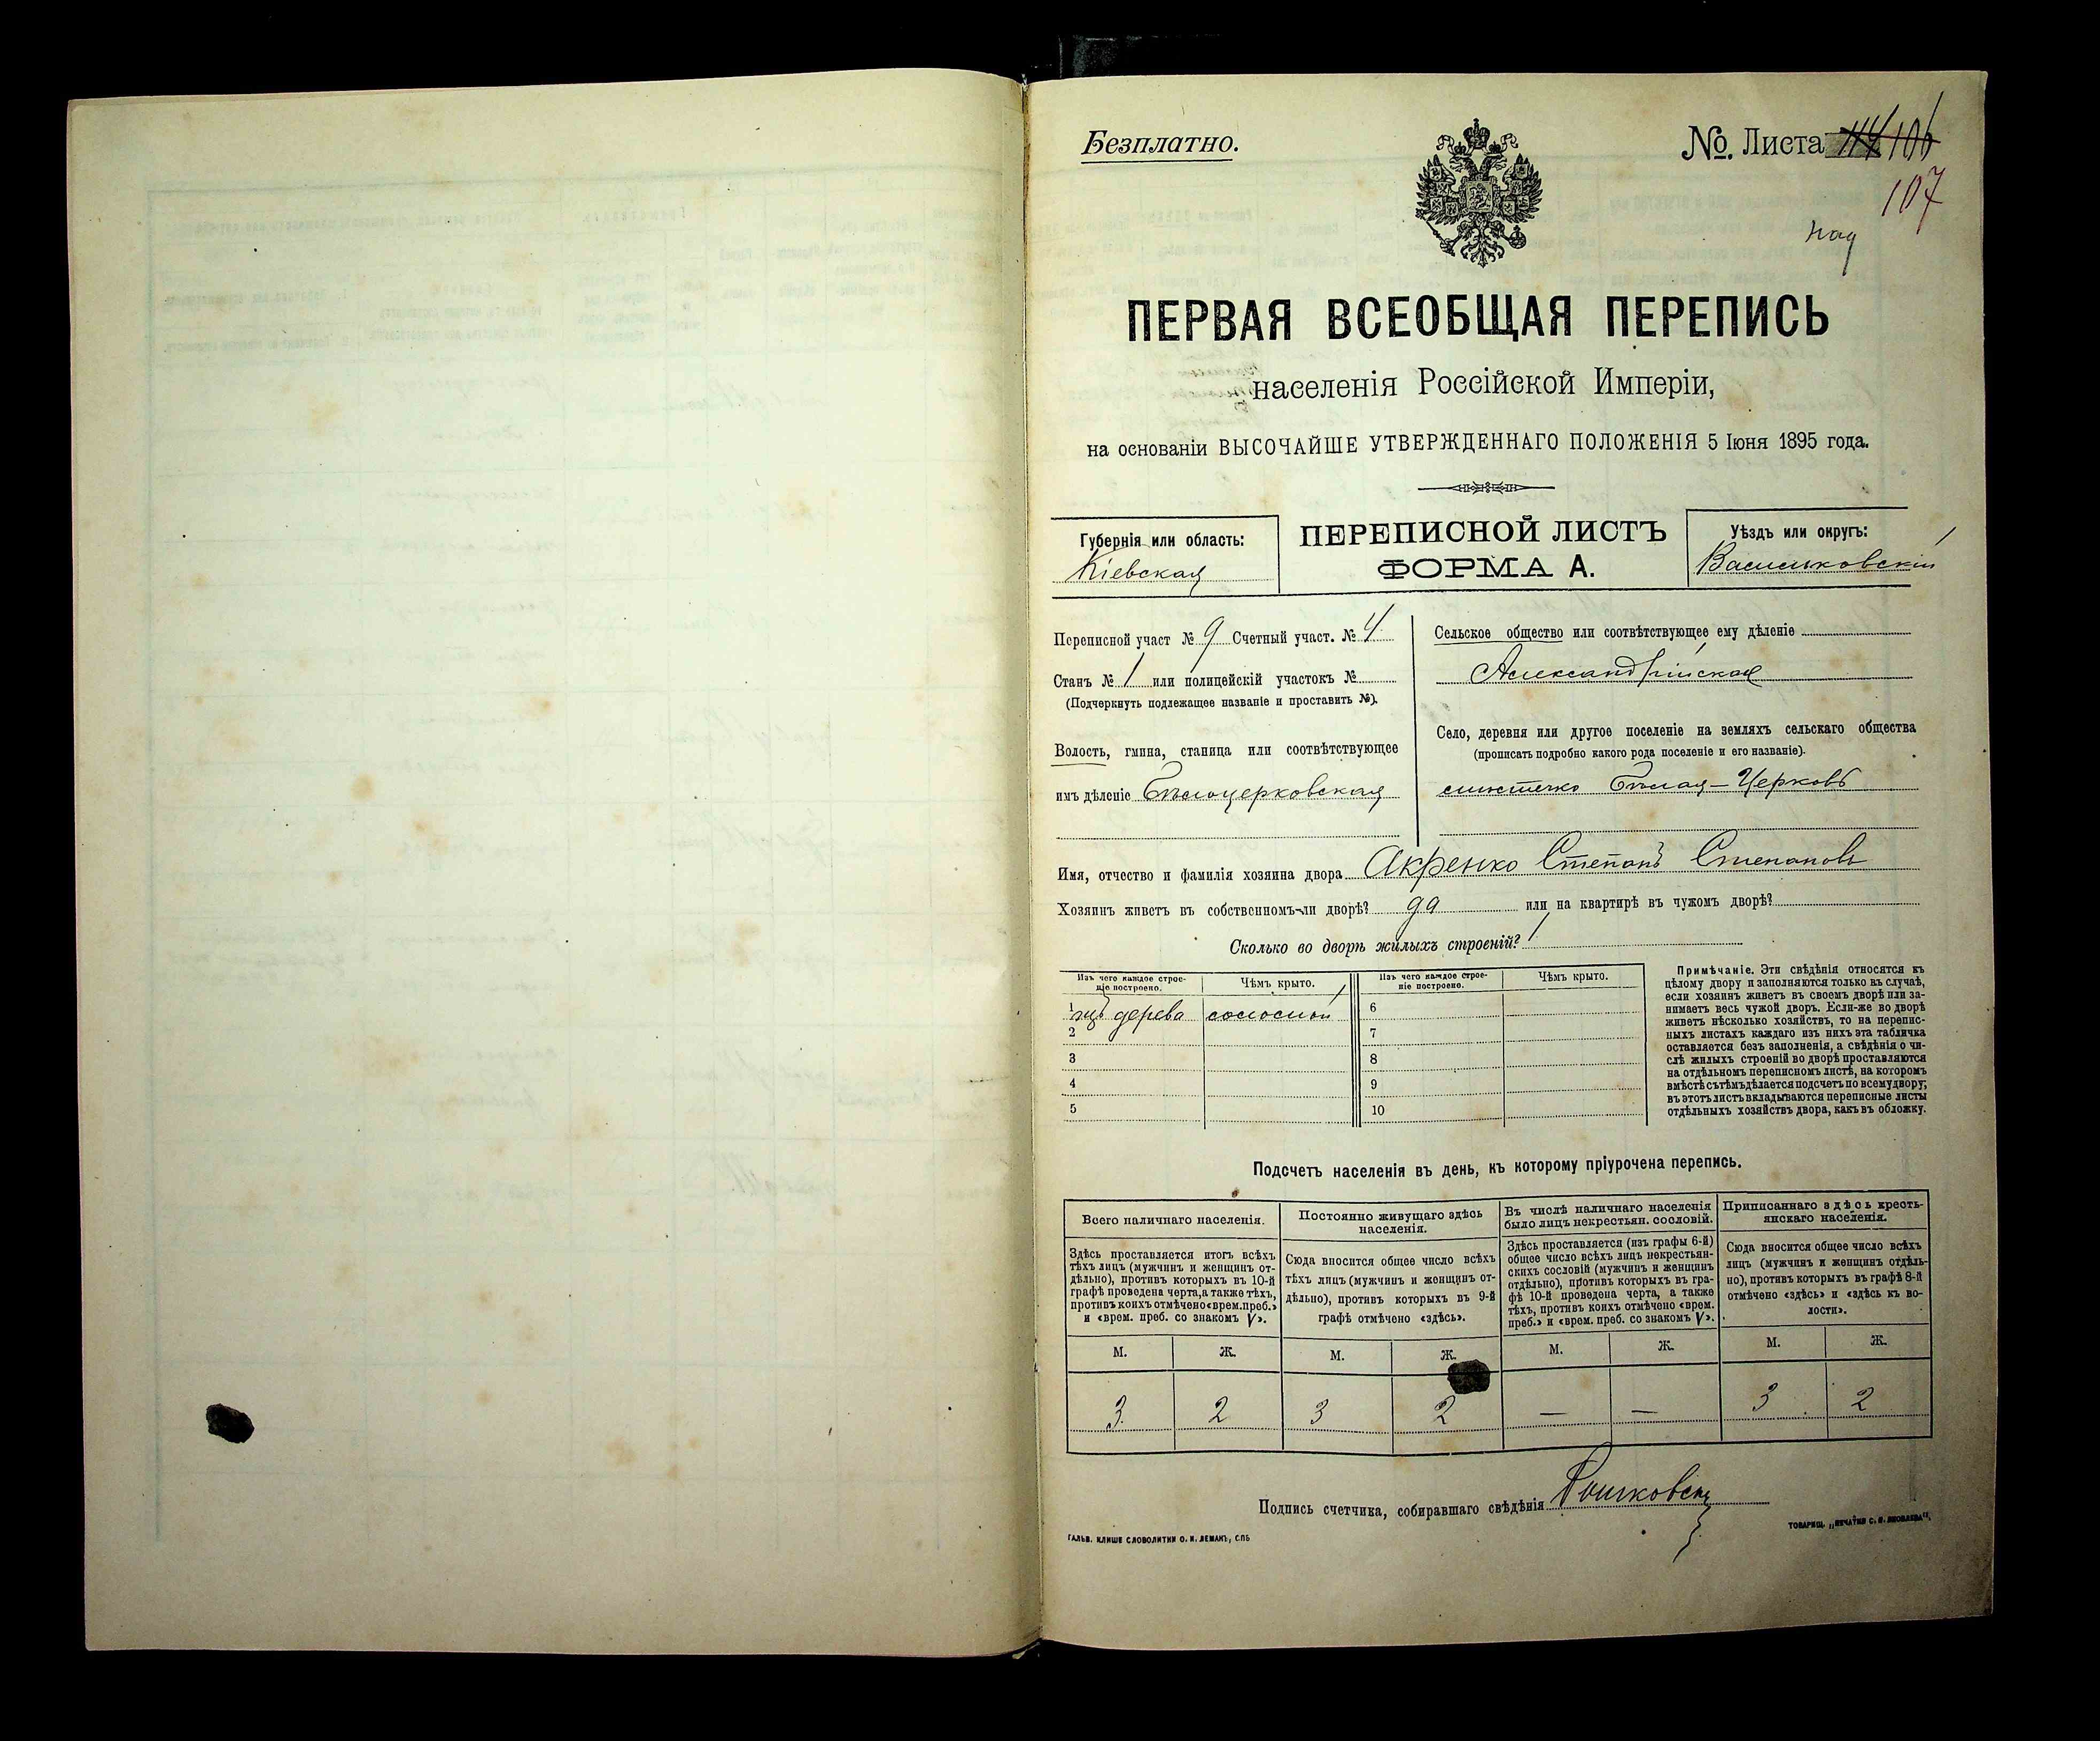 Безплатно.
№. Листа 114 106
107
ПЕРВАЯ ВСЕОБЩАЯ ПЕРЕПИСЬ
населенія Россійской Имперіи,
на основаніи ВЫСОЧАЙШЕ УТВЕРЖДЕННАГО ПОЛОЖЕНІЯ 5 Іюня 1895 года.
Губернія или область:
Кіевская
ПЕРЕПИСНОЙ ЛИСТЪ
ФОРМА А.
Уѣздъ или округъ:
Васильковскій
Переписной участ № 9 Счетный участ. № 4
Станъ № 1 или полицейскій участокъ №
(Подчеркнуть подлежащее названіе и проставить №).
Волость, гмина, станица или соотвѣтствующее
имъ дѣленіе Бѣлоцерковская
Сельское общество или соотвѣтствующее ему дѣленіе
Александрійская
Село, деревня или другое поселеніе на земляхъ сельскаго общества
(прописать подробно какого рода поселеніе и его названіе).
мѣстечко Бѣлая-Церковь
Имя, отчество и фамилія хозяина двора Акренко Степанъ Степановъ
Хозяинъ живетъ въ собственномъ-ли дворѣ? да или на квартирѣ въ чужомъ дворѣ?
Сколько во дворѣ жилыхъ строеній? 1
Изъ чего каждое строе-
ніе построено.
Чѣмъ крыто.
Изъ чего каждое строе-
ніе построено.
Чѣмъ крыто.
1 изъ дерева соломой 6
2 7
3 8
4 9
5 10
Примѣчаніе. Эти свѣдѣнія относятся къ
цѣлому двору и заполняются только въ случаѣ,
если хозяинъ живетъ въ своемъ дворѣ или за-
нимаетъ весь чужой дворъ. Если-же во дворѣ
живетъ нѣсколько хозяйствъ, то на перепис-
ныхъ листахъ каждаго изъ нихъ эта табличка
оставляется безъ заполненія, а свѣдѣнія о чи-
слѣ жилыхъ строеній во дворѣ проставляются
на отдѣльномъ переписномъ листѣ, на которомъ
вмѣстѣ съ тѣмъ дѣлается подсчетъ по всему двору;
въ этотъ листъ вкладываются переписные листы
отдѣльныхъ хозяйствъ двора, какъ въ обложку.
Подсчетъ населенія въ день, къ которому пріурочена перепись.
Всего наличнаго населенія.
Здѣсь проставляется итогъ всѣхъ
тѣхъ лицъ (мужчинъ и женщинъ от-
дѣльно), противъ которыхъ въ 10-й
графѣ проведена черта, а также тѣхъ,
противъ коихъ отмѣчено «врем. преб.»
и «врем. преб. со знакомъ V».
Постоянно живущаго здѣсь
населенія.
Сюда вносится общее число всѣхъ
тѣхъ лицъ (мужчинъ и женщинъ от-
дѣльно), противъ которыхъ въ 9-й
графѣ отмѣчено «здѣсь».
Въ числѣ наличнаго населенія
было лицъ некрестьян. сословій.
Здѣсь проставляется (изъ графы 6-й)
общее число всѣхъ лицъ некрестьян-
скихъ сословій (мужчинъ и женщинъ
отдѣльно), противъ которыхъ въ гра-
фѣ 10-й проведена черта, а также
тѣхъ, противъ коихъ отмѣчено «врем.
преб.» и «врем. преб. со знакомъ V».
Приписаннаго здѣсь кресть-
янскаго населенія.
Сюда вносится общее число всѣхъ
лицъ (мужчинъ и женщинъ отдѣль-
но), противъ которыхъ въ графѣ 8-й
отмѣчено «здѣсь» и «здѣсь къ во-
лости».
М. Ж. М. Ж. М. Ж. М. Ж.
3 2 3 2 — — 3 2
Подпись счетчика, собиравшаго свѣдѣнія
ГАЛЬВ. КЛИШЕ СЛОВОЛИТНИ О. И. ЛЕМАНЪ, СПБ
ТОВАРИЩ. „ПЕЧАТНЯ С. П. ЯКОВЛЕВА".